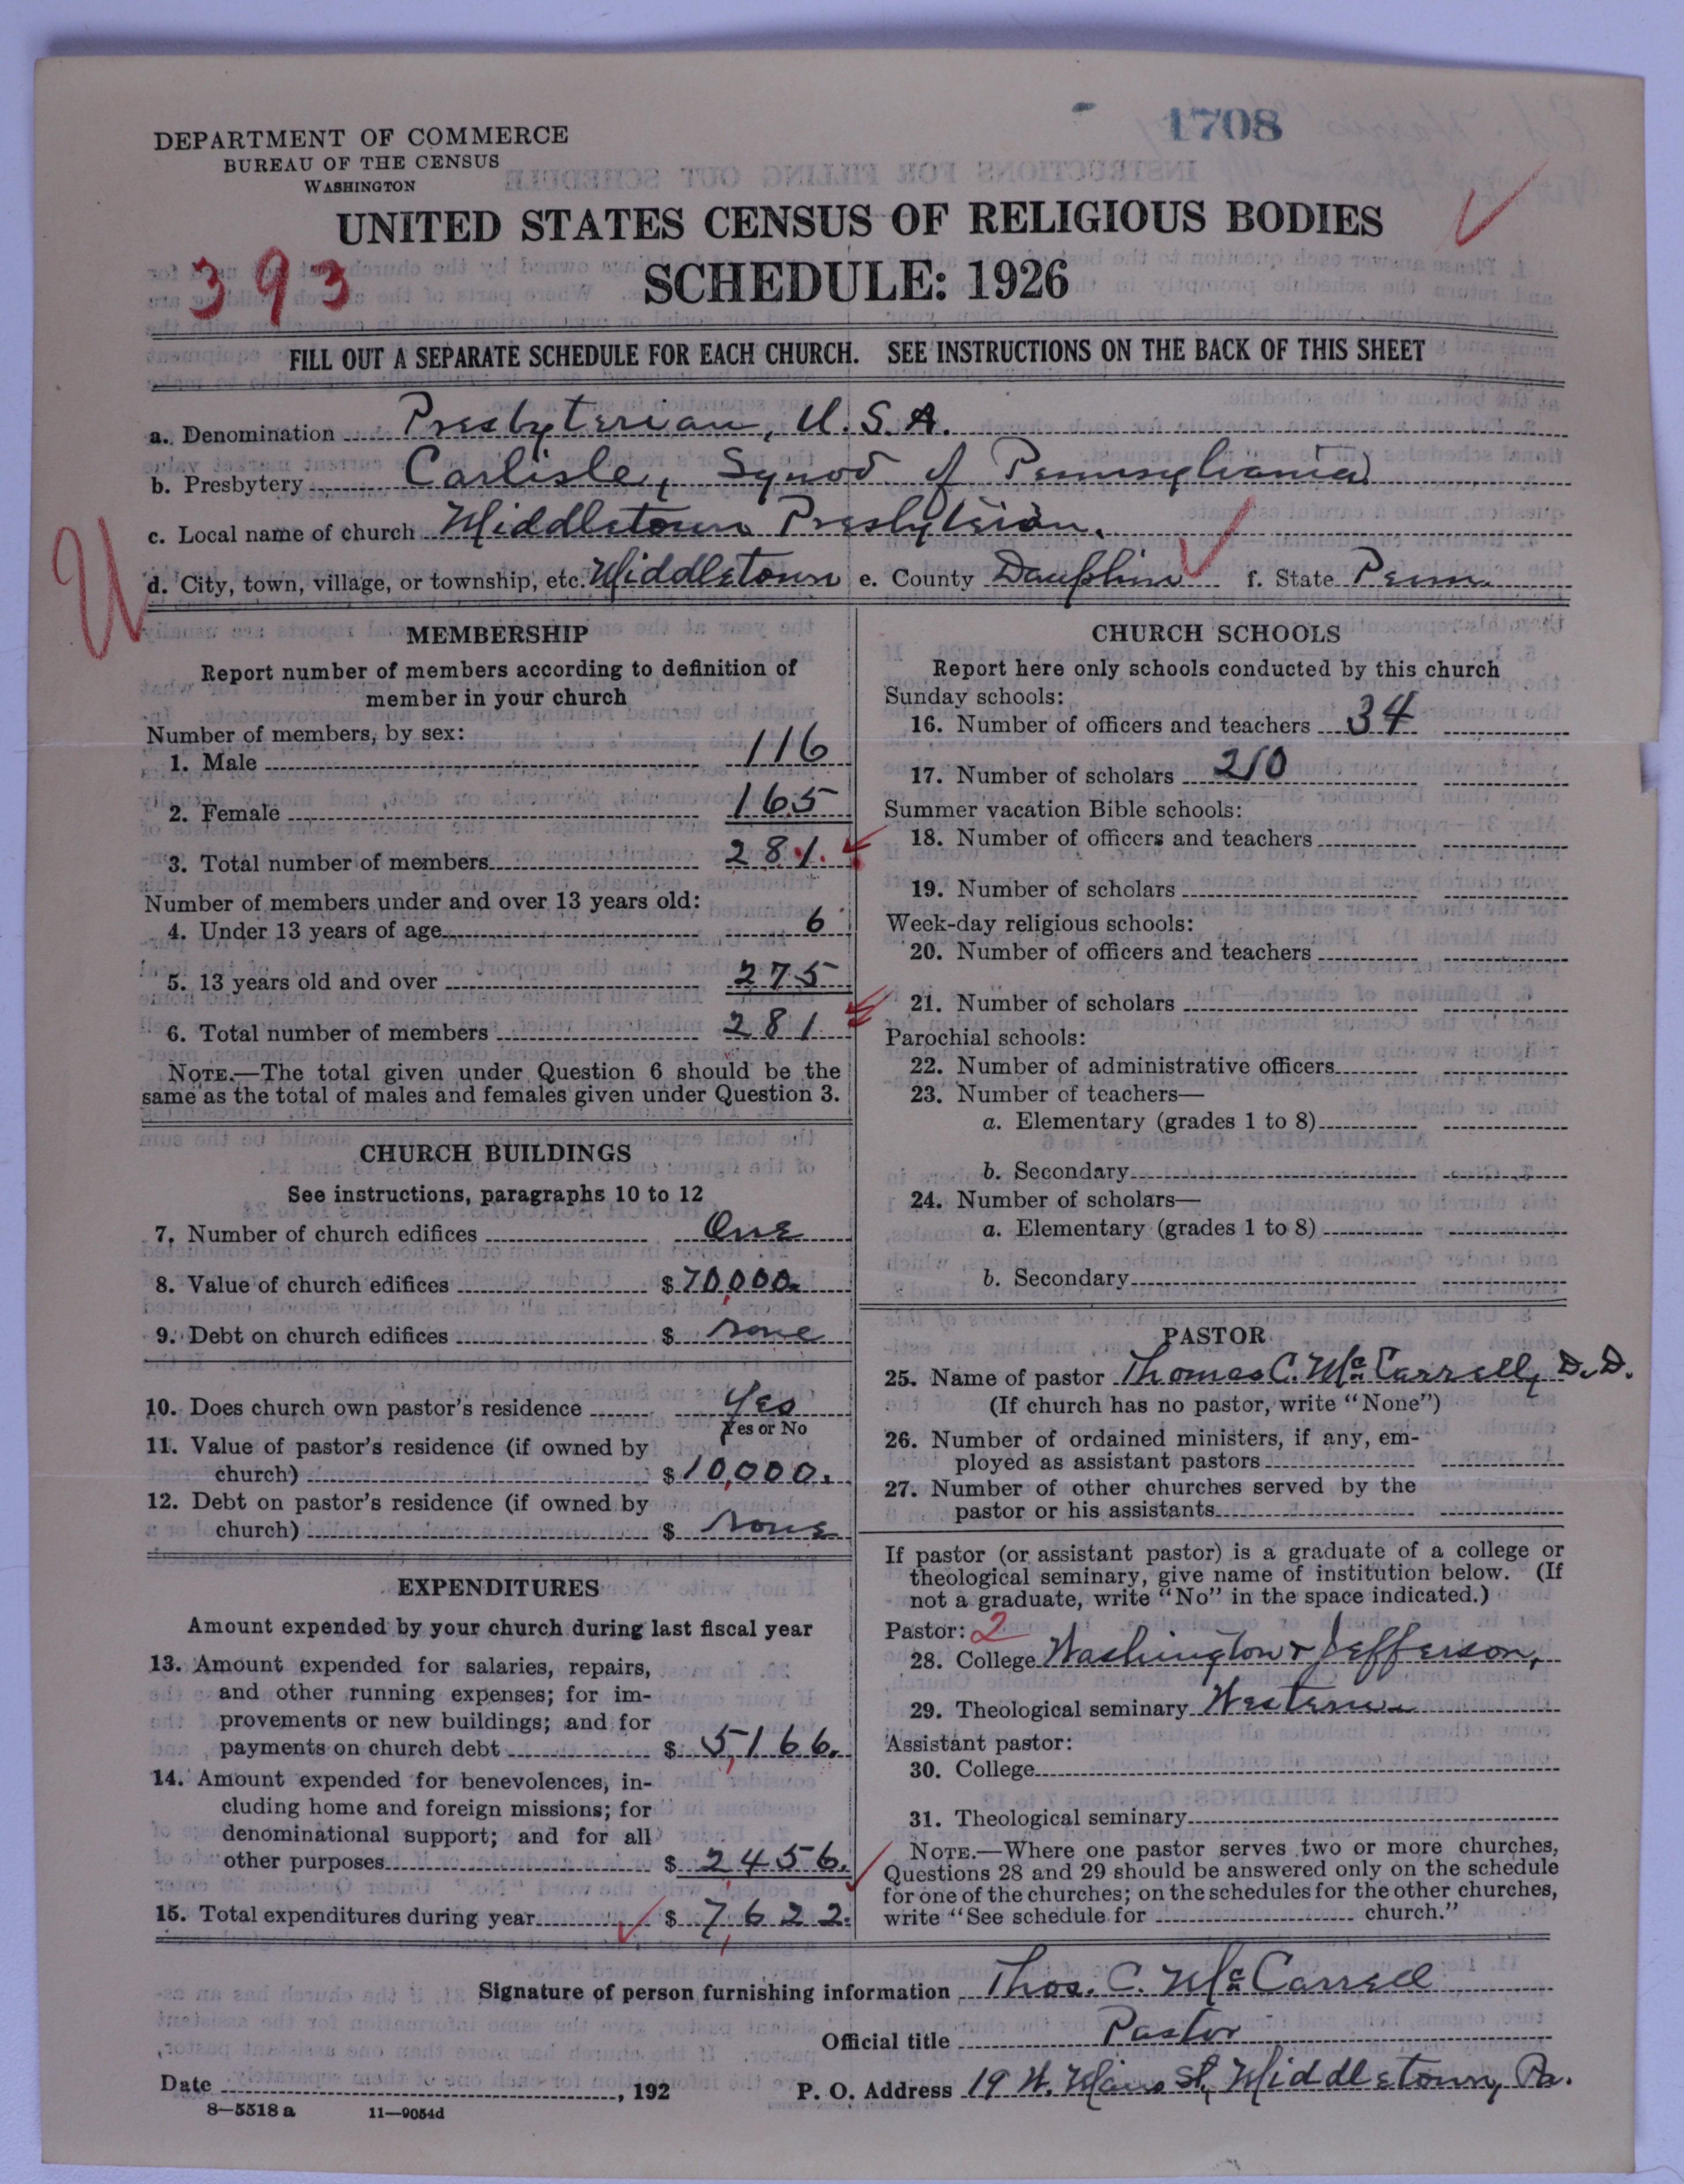 1708
DEPARTMENT OF COMMERCE
BUREAU OF THE CENSUS
WASHINGTON
UNITED STATES CENSUS OF RELIGIOUS BODIES
393
SCHEDULE: 1926
FILL OUT A SEPARATE SCHEDULE FOR EACH CHURCH. SEE INSTRUCTIONS ON THE BACK OF THIS SHEET
a. Denomination Presbyterian, U.S.A.
b. Presbytery Carlisle, Synod of Pennsylvania
c. Local name of church Middletown Presbyterian.
d. City, town, village, or township, etc. Middletown e. County Dauphin f. State Penn.
U
MEMBERSHIP
Report number of members according to definition of
member in your church
Number of members, by sex:
1. Male 116
2. Female 165
3. Total number of members 281.
Number of members under and over 13 years old:
4. Under 13 years of age 6
5. 13 years old and over 275
6. Total number of members 281
NOTE.—The total given under Question 6 should be the
same as the total of males and females given under Question 3.
CHURCH BUILDINGS
See instructions, paragraphs 10 to 12
7. Number of church edifices One
8. Value of church edifices $70,000.
9. Debt on church edifices $ none
10. Does church own pastor's residence Yes
Yes or No
11. Value of pastor's residence (if owned by
church) $10,000.
12. Debt on pastor's residence (if owned by
church) $ none
EXPENDITURES
Amount expended by your church during last fiscal year
13. Amount expended for salaries, repairs,
and other running expenses; for im-
provements or new buildings; and for
payments on church debt $ 5,166.
14. Amount expended for benevolences, in-
cluding home and foreign missions; for
denominational support; and for all
other purposes $ 2,456.
15. Total expenditures during year $ 7,622.
CHURCH SCHOOLS
Report here only schools conducted by this church
Sunday schools:
16. Number of officers and teachers 34
17. Number of scholars 210
Summer vacation Bible schools:
18. Number of officers and teachers
19. Number of scholars
Week-day religious schools:
20. Number of officers and teachers
21. Number of scholars
Parochial schools:
22. Number of administrative officers
23. Number of teachers—
a. Elementary (grades 1 to 8)
b. Secondary
24. Number of scholars—
a. Elementary (grades 1 to 8)
b. Secondary
PASTOR
25. Name of pastor Thomas C. McCarrell, D.D.
(If church has no pastor, write "None")
26. Number of ordained ministers, if any, em-
ployed as assistant pastors
27. Number of other churches served by the
pastor or his assistants
If pastor (or assistant pastor) is a graduate of a college or
theological seminary, give name of institution below. (If
not a graduate, write "No" in the space indicated.)
Pastor: 2
28. College Washington & Jefferson,
29. Theological seminary Western
Assistant pastor:
30. College
31. Theological seminary
NOTE.—Where one pastor serves two or more churches,
Questions 28 and 29 should be answered only on the schedule
for one of the churches; on the schedules for the other churches,
write "See schedule for church."
Signature of person furnishing information Thos. C. McCarrell
Official title Pastor
Date , 192
P. O. Address 19 W. Main St, Middletown, Pa.
8—5518a 11—9054d